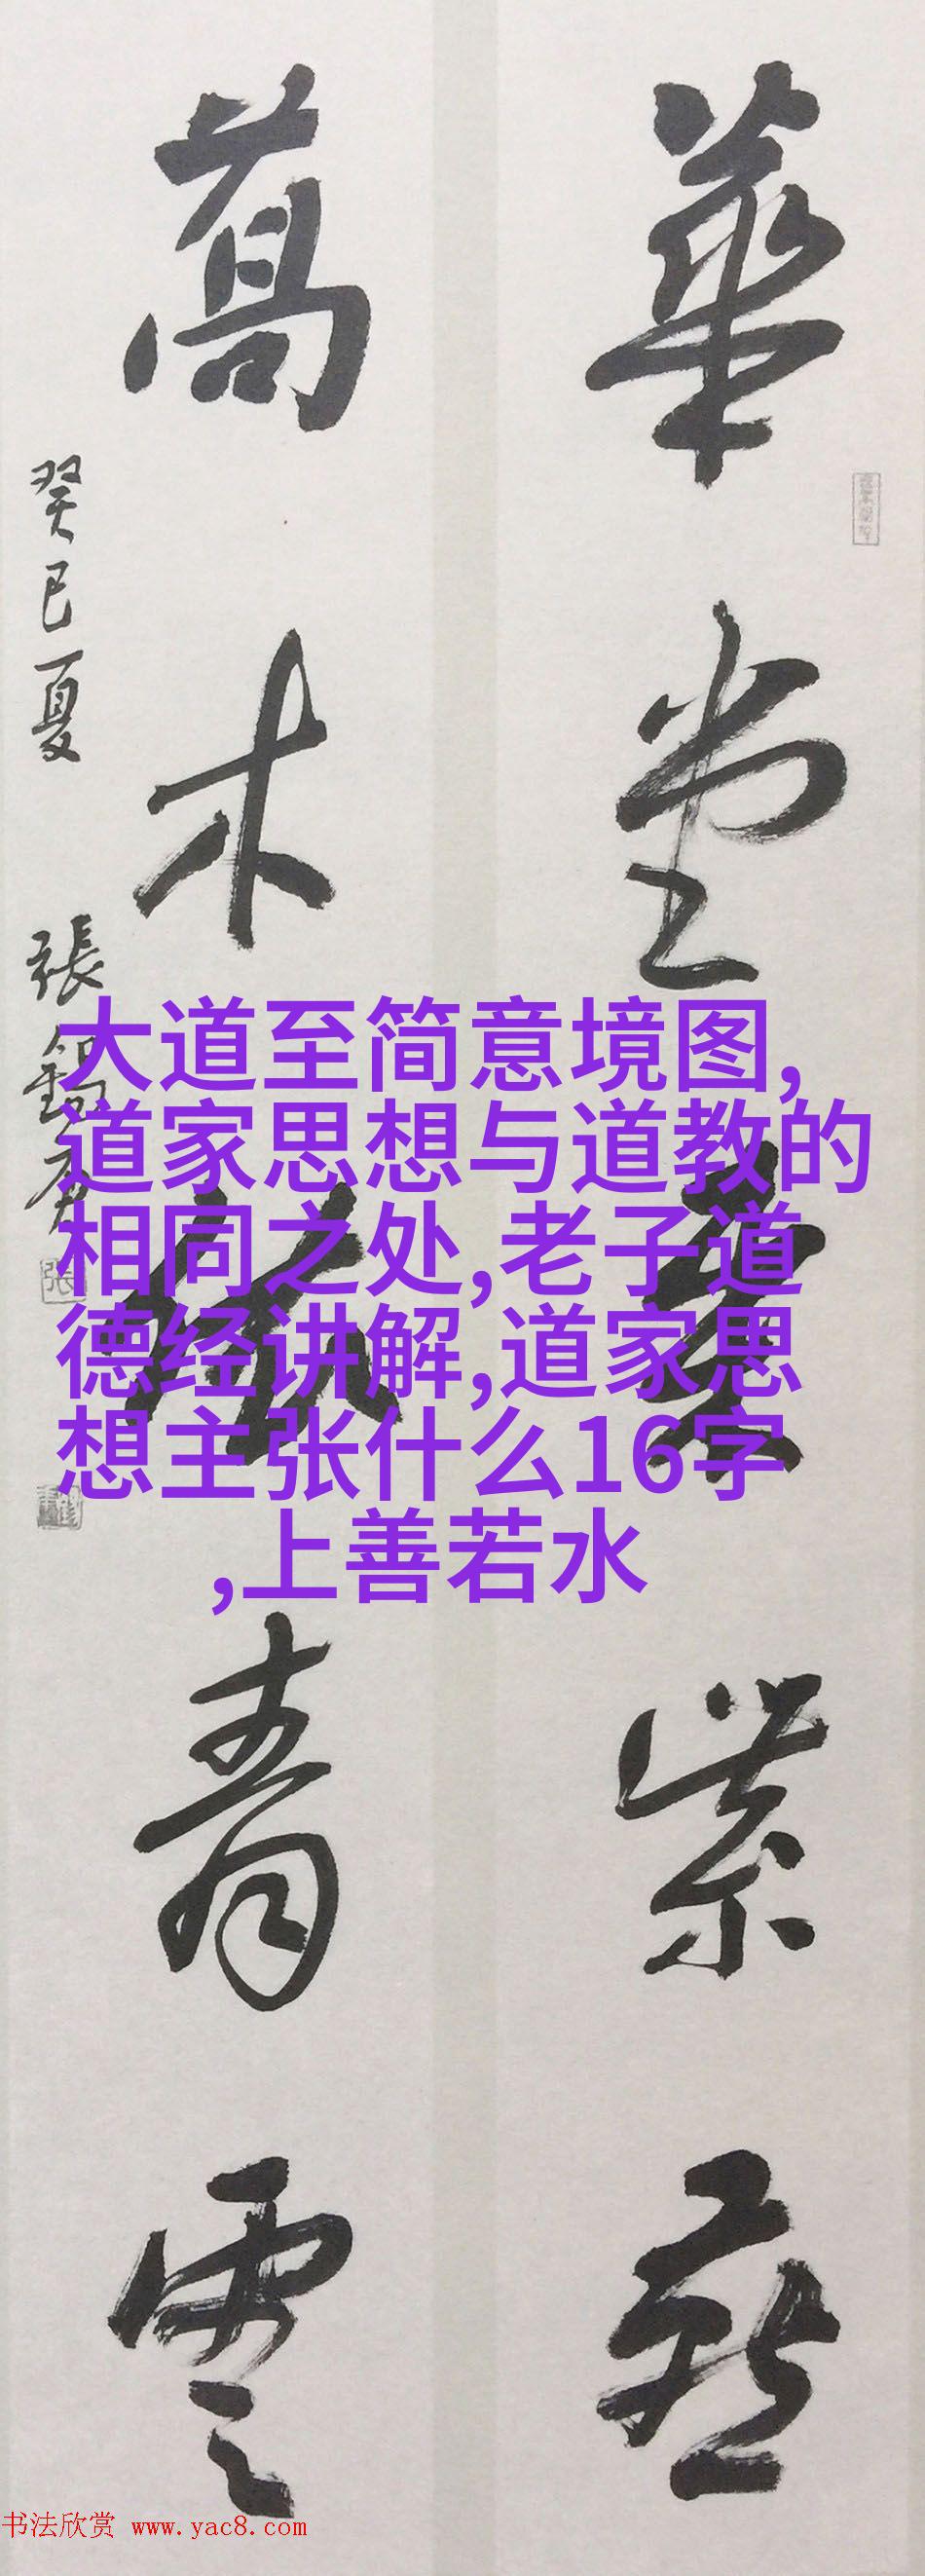 華堂紫
萬木青雲
癸巳夏 張
大道至简意境图,
道家思想与道教的
相同之处,老子道
德经讲解,道家思
想主张什么16字
,上善若水
书法欣赏 www.yac8.com